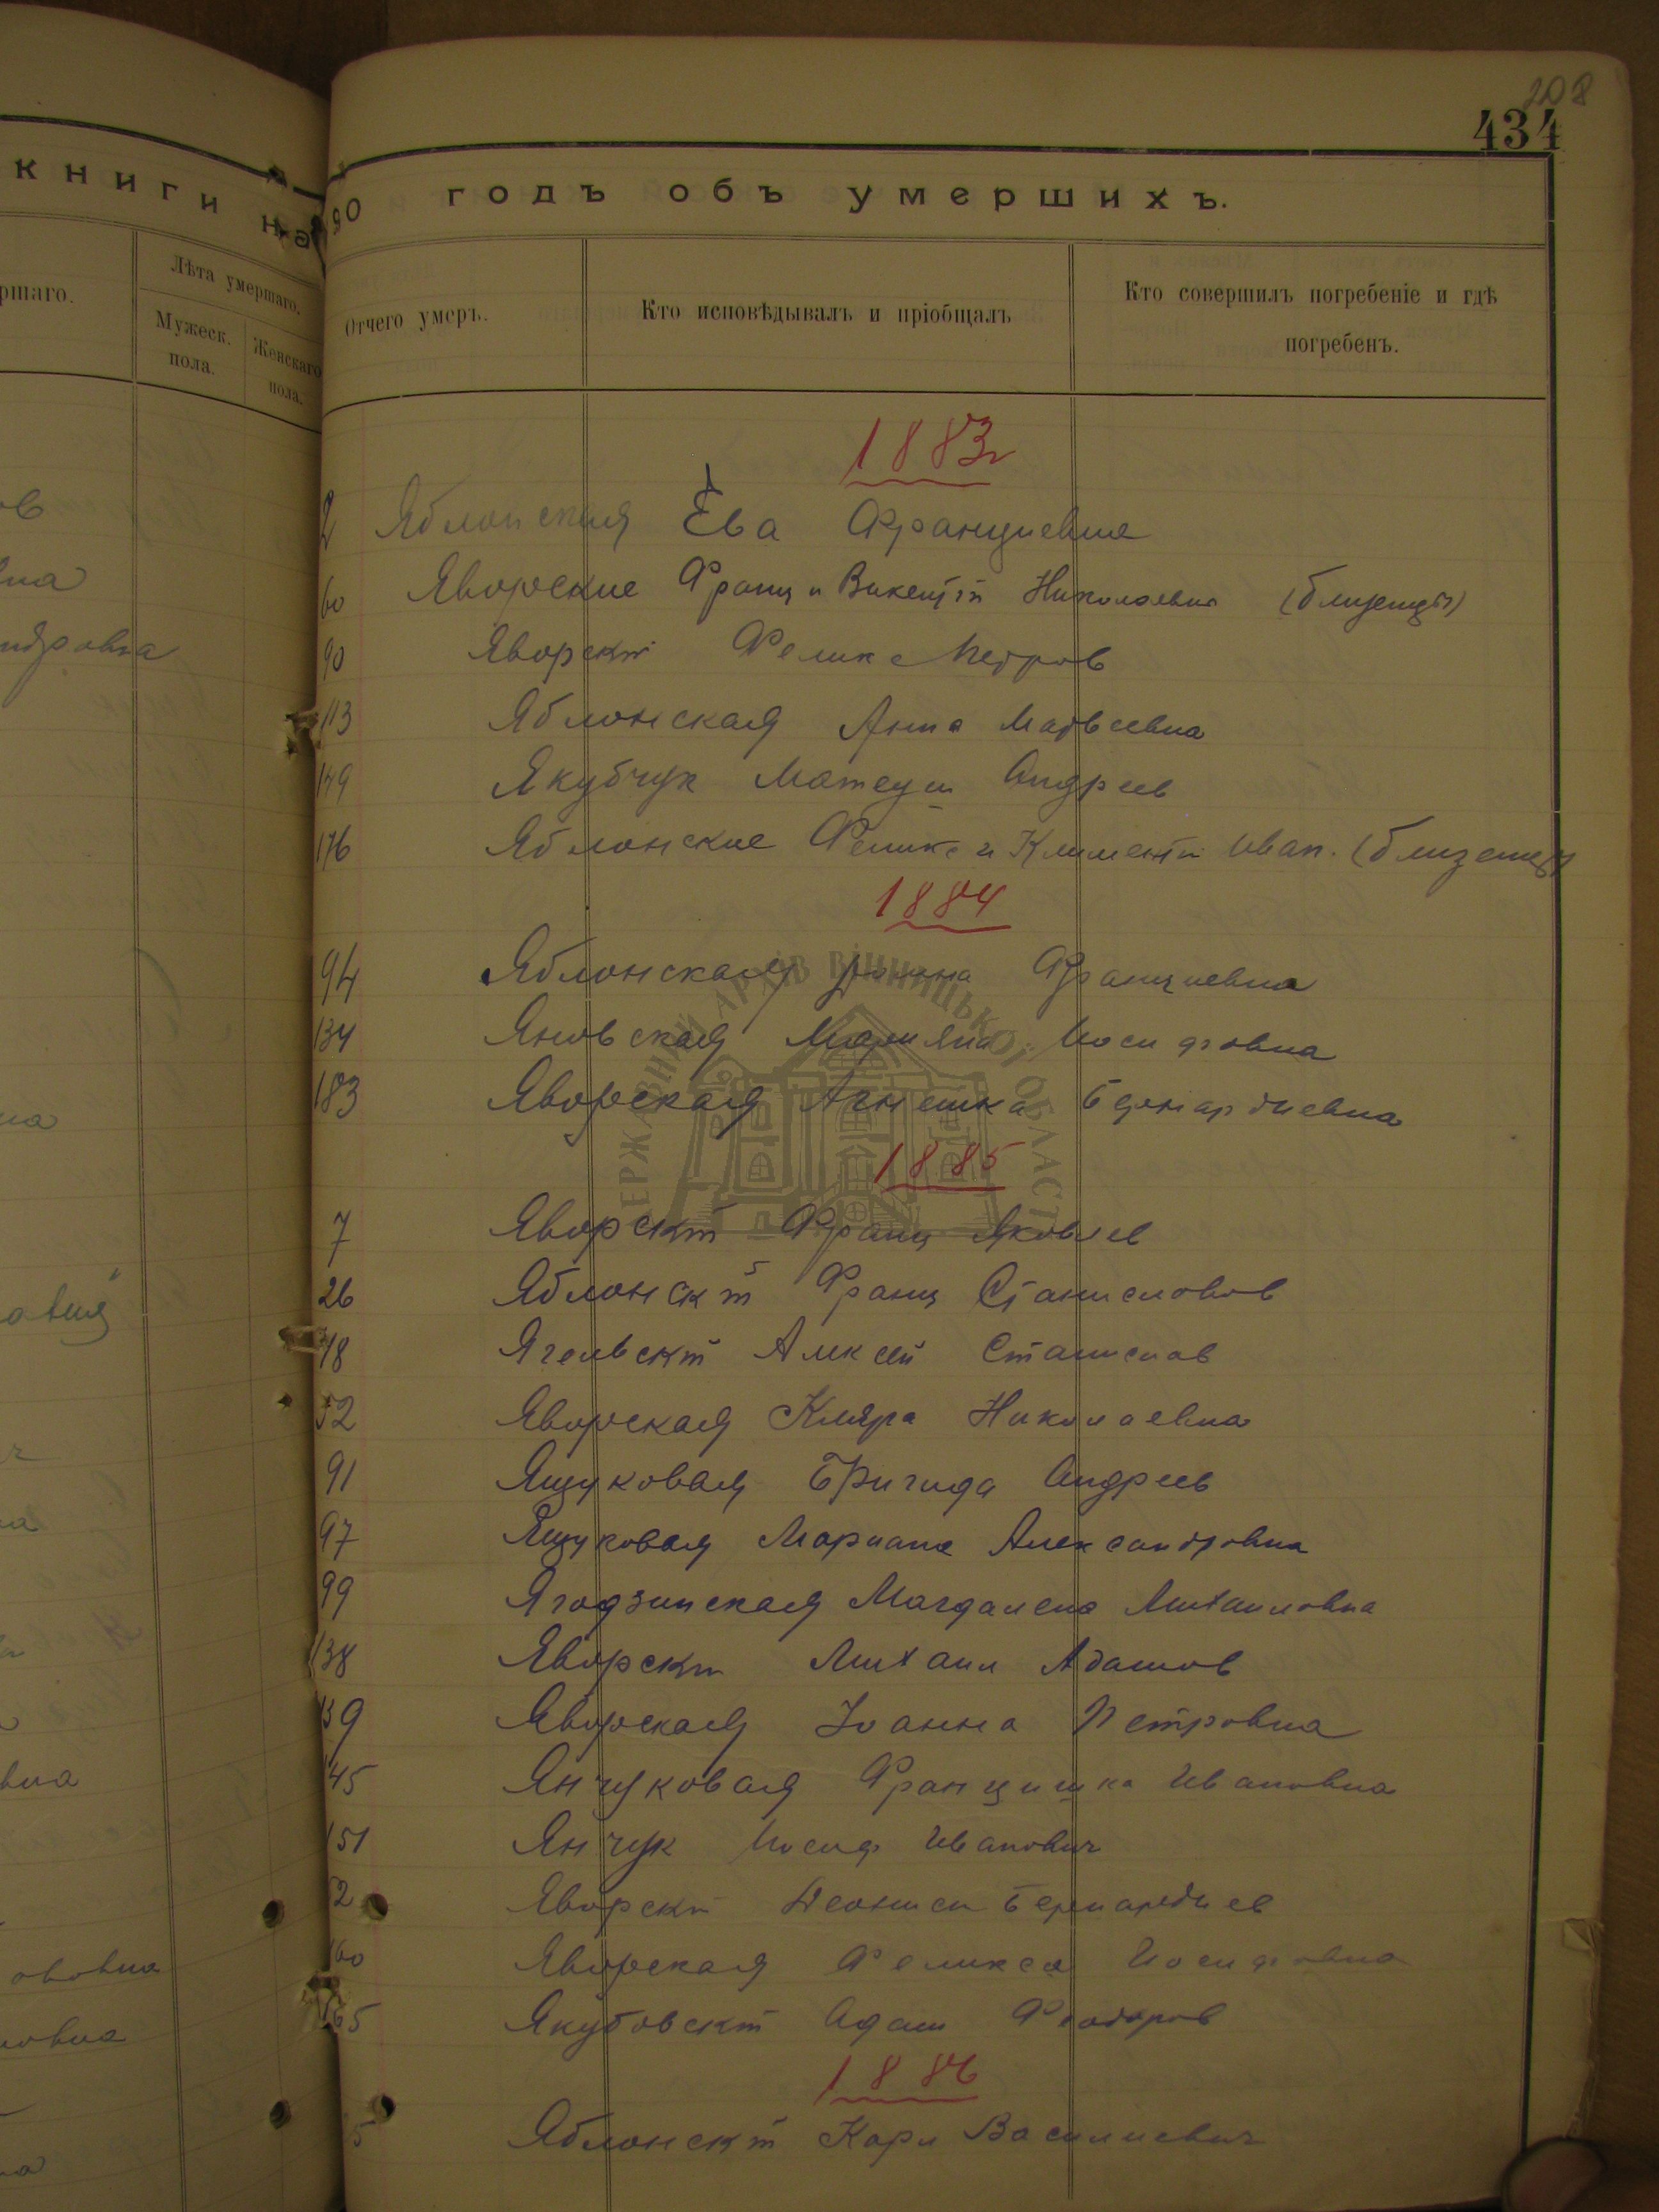 208
434
книги на 190 годъ объ умершихъ.
ршаго.
Лѣта умершаго.
Мужеск. пола.
Женскаго пола.
Отчего умеръ.
Кто исповѣдывалъ и пріобщалъ
Кто совершилъ погребеніе и гдѣ погребенъ.
1883г
2 Яблонская Ева Францневна
60 Яворские Франц и Викентій Николаевич (близнецы)
90 Яворскій Феликс Петров
113 Яблонская Анна Матвеевна
149 Якубчук Матеуш Андреев
176 Яблонские Феликс и Климентій Иван. (близнецы)
1884
94 Яблонская Францневна
134 Яновская Марияна Иосифовна
183 Яворская Агнешка Бернардневна
ДЕРЖАВНИЙ АРХІВ ВІННИЦЬКОЇ ОБЛАСТІ
1885
7 Яворскій Франц Яковлев
26 Яблонскій Франц Станиславов
48 Ягельскій Алексей Станислав
52 Яворская Кляра Николаевна
91 Ящуковая Бригида Андреев
97 Ящуковая Мариана Александровна
99 Ягодзинская Магдалена Михайловна
138 Яворскій Михаил Адамов
139 Яворская Іоанна Петровна
145 Янчуковая Францишка Ивановна
151 Янчук Иосиф Иванович
52 Яворскій Бернардиев
160 Яворская Феликса Иосифовна
165 Якубовскій Адам Феодоров
1886
5 Яблонскій Карл Василиевич